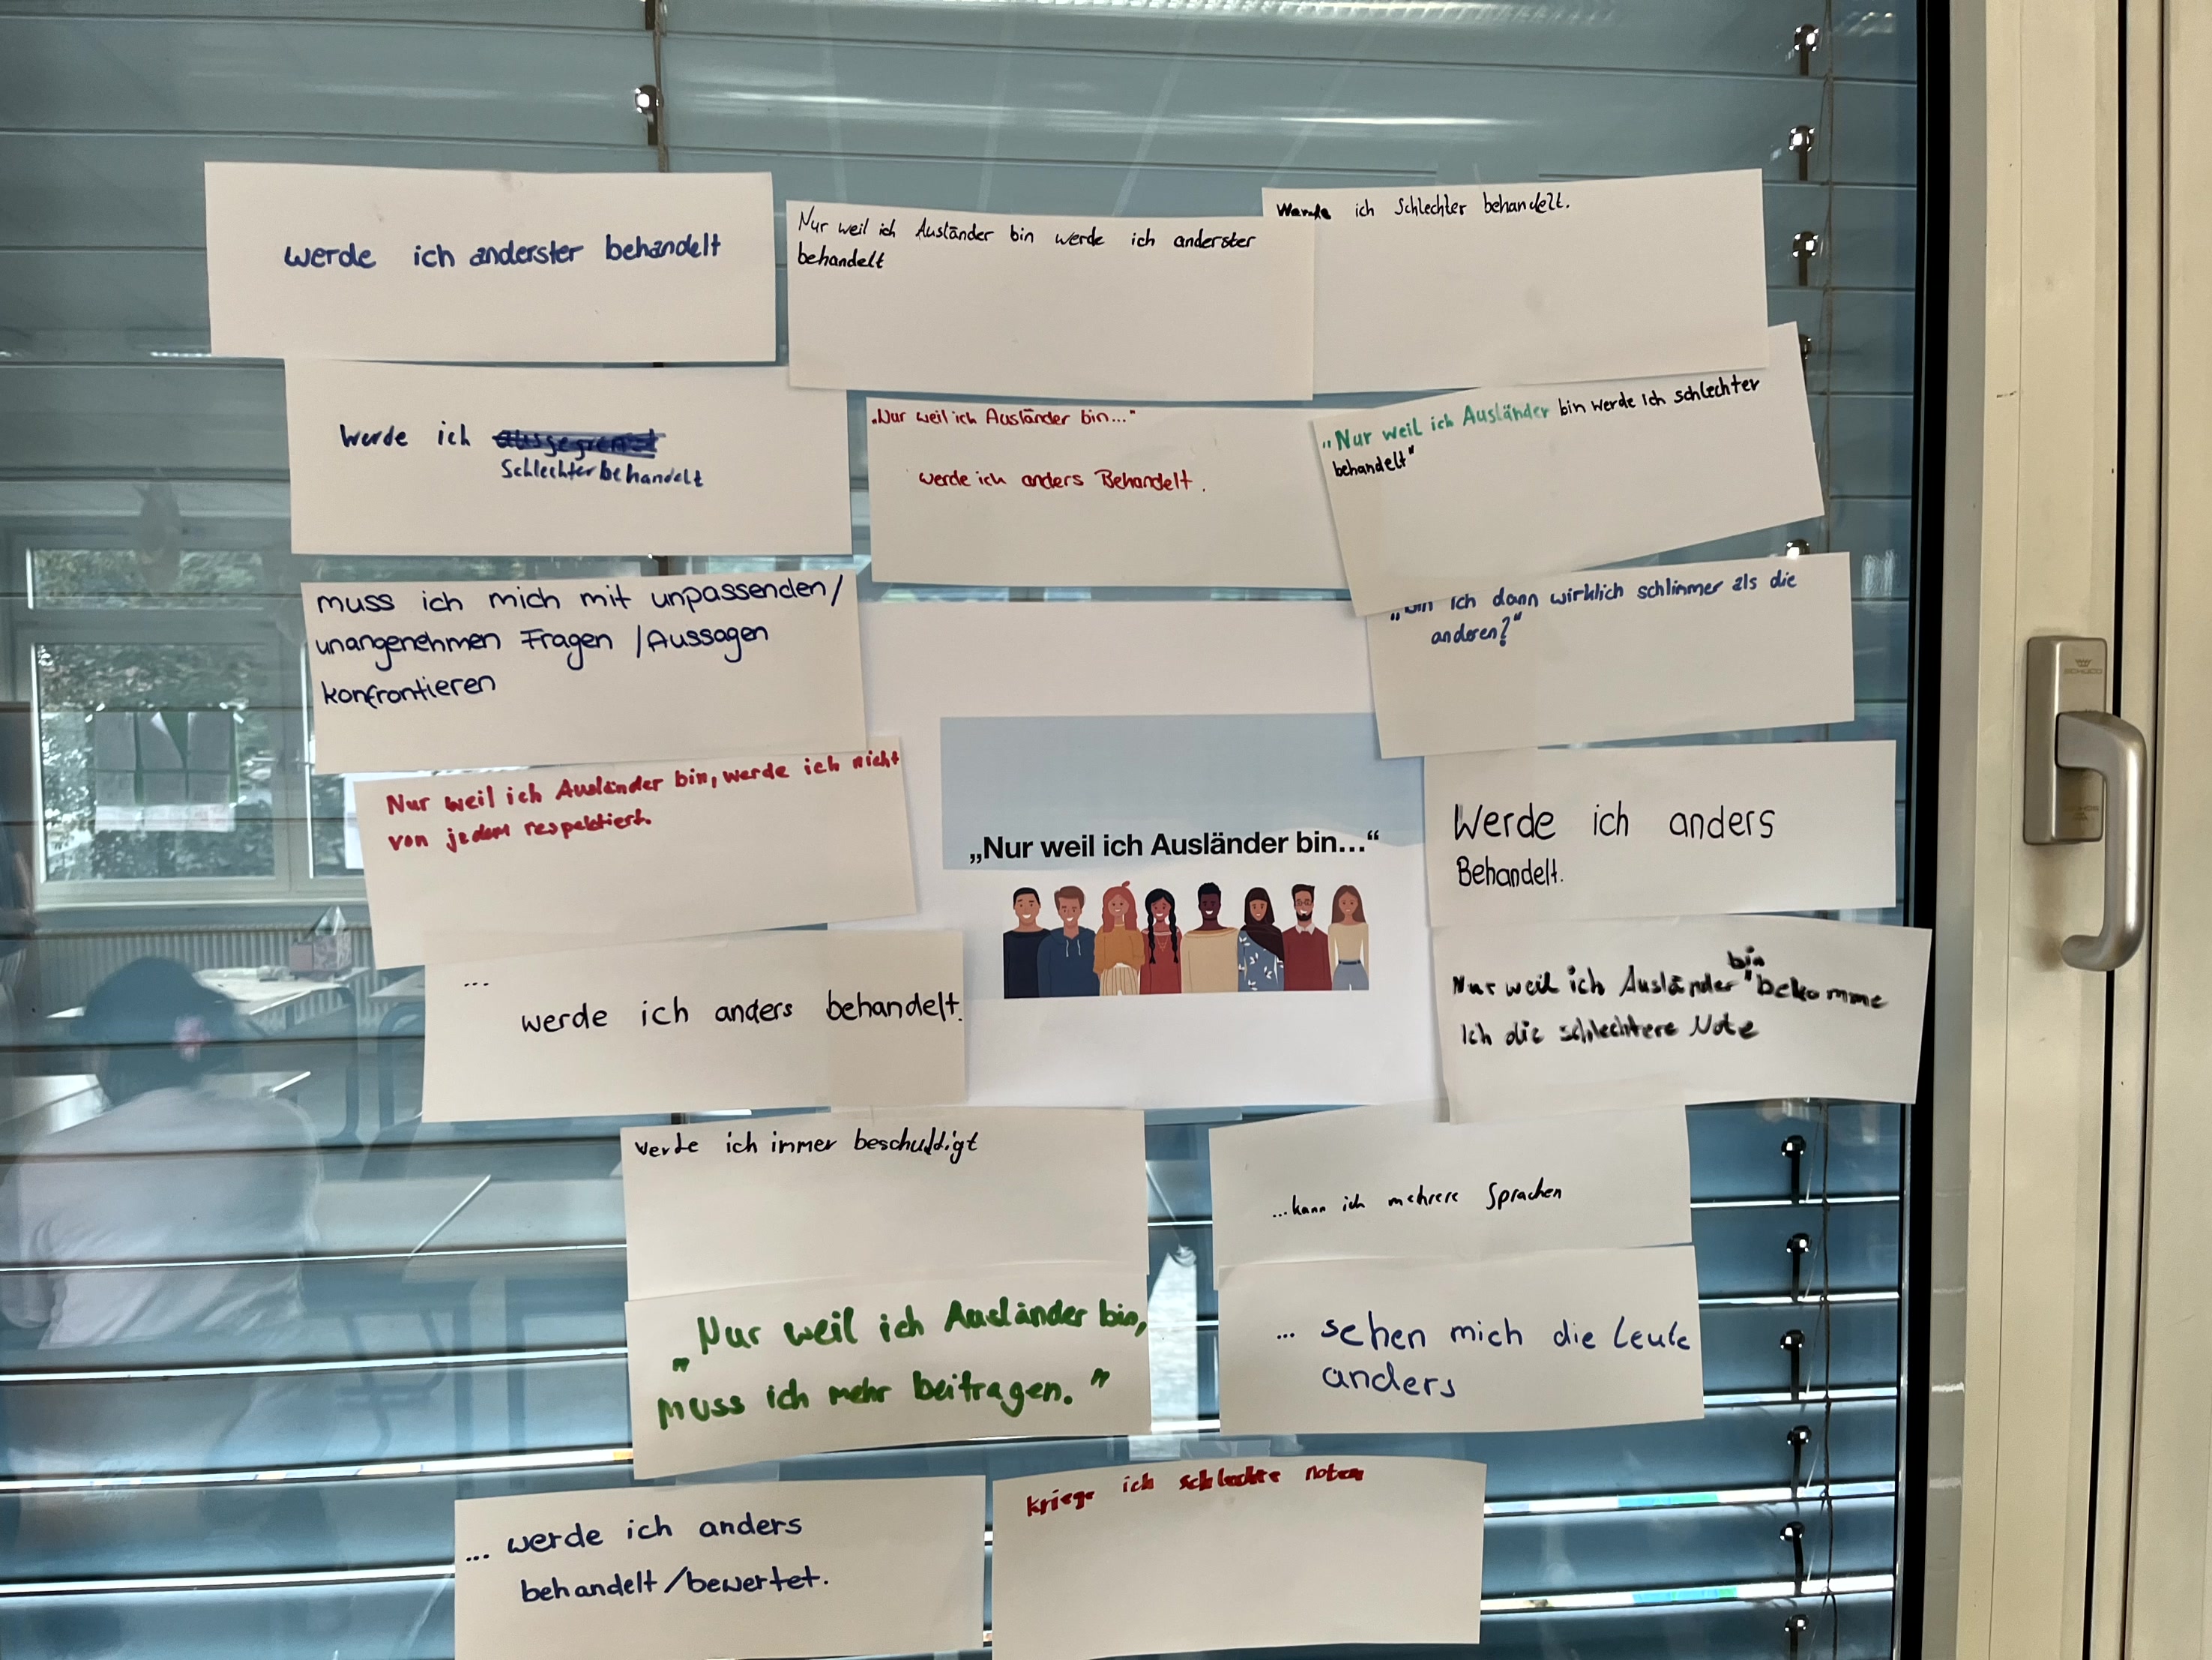 werde ich anderster behandelt
Nur weil ich Ausländer bin werde ich anderster
behandelt
Werde ich Schlechter behandelt.
Werde ich
Schlechter behandelt
„Nur weil ich Ausländer bin..."
werde ich anders Behandelt.
„Nur weil ich Ausländer bin werde ich schlechter
behandelt"
muss ich mich mit unpassenden/
unangenehmen Fragen /Aussagen
konfrontieren
„bin ich dann wirklich schlimmer als die
anderen?"
Nur weil ich Ausländer bin, werde ich nicht
von jedem respektiert.
„Nur weil ich Ausländer bin...“
Werde ich anders
Behandelt.
...
werde ich anders behandelt.
Nur weil ich Ausländer bin bekomme
Ich die schlechtere Note
werde ich immer beschuldigt
...kann ich mehrere Sprachen
„Nur weil ich Ausländer bin,
muss ich mehr beitragen."
... sehen mich die Leute
anders
... werde ich anders
behandelt/bewertet.
kriege ich schlechte noten
SCHÜCO